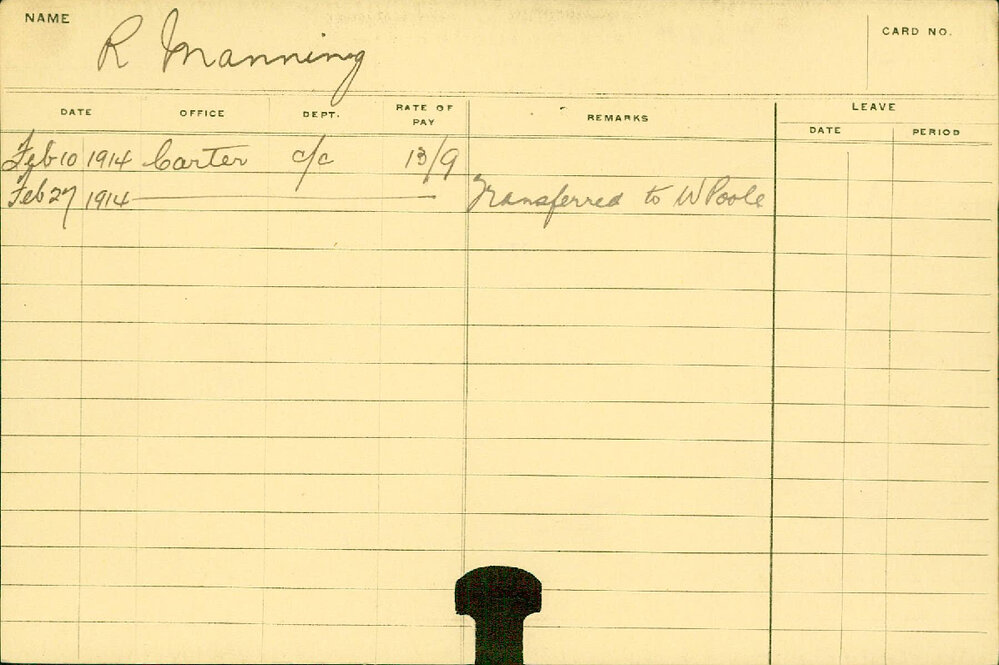 NAME R Manning CARD NO.
DATE OFFICE DEPT. RATE OF PAY REMARKS LEAVE
DATE PERIOD
Feb 10 1914 Carter c/c 13/9
Feb 27 1914 Transferred to W Poole